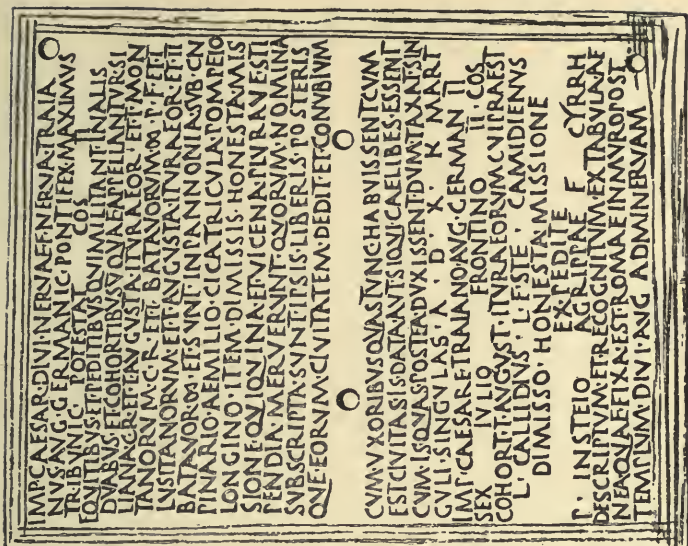 IMP·CAESAR·DIVI·NERVAE·F·NERVA·TRAIA
NVS·AVG·GERMANIC·PONTIFEX·MAXIMVS
TRIBVNIC POTESTAT COS II
EQVITIBVS·ET·PEDITIBVS·QVI·MILITANT·IN·ALIS
DVABVS·ET·COHORTIBVS·QVAE·APPELLANTVR·SI
LIANA·C·R·ET·I·AVGVSTA·ITVRAEOR·ET·I·MON
TANORVM·C·R·ET·I·BATAVORVM ∞ P·F·ET·I
LVSITANORVM·ET·I·AVGVSTA·ITVRAEOR·ET·II
BATAVOR ∞ ET·SVNT·IN·PANNONIA·SVB·CN
PINARIO·AEMILIO·CICATRICVLA·POMPEIO
LONGINO·ITEM·DIMISSIS·HONESTA·MIS
SIONE·QVI·QVINA·ET·VICENA·PLVRAVE·STI
PENDIA·MERVERVNT·QVORVM·NOMINA
SVBSCRIPTA·SVNT·IPSIS·LIBERIS·POSTERIS
QVE·EORVM·CIVITATEM·DEDIT·ET·CONVBIVM
CVM·VXORIBVS·QVAS·TVNC·HABVISSENT·CVM
EST·CIVITAS·IS·DATA·AVT·SI·QVI·CAELIBES·ESSENT
CVM·IS·QVAS·POSTEA·DVXISSENT·DVM·TAXAT·SIN
GVLI·SINGVLAS· A · D · X · K · MART
IMP·CAESARE·TRAIANO·AVG·GERMAN II
SEX IVLIO FRONTINO II COS
COHORT·I·AVGVST·ITVRAEORVM·CVI·PRAEST
L·CALLIDIVS·L·F·STE·CAMIDIENVS
DIMISSO·HONESTA·MISSIONE
EXPEDITE
P·INSTEIO AGRIPPAE F CYRRH
DESCRIPTVM·ET·RECOGNITVM·EX·TABVLA·AE
NEA·QVAE·FIXA·EST·ROMAE·IN·MVRO·POST
TEMPLVM·DIVI·AVG·AD·MINERVAM